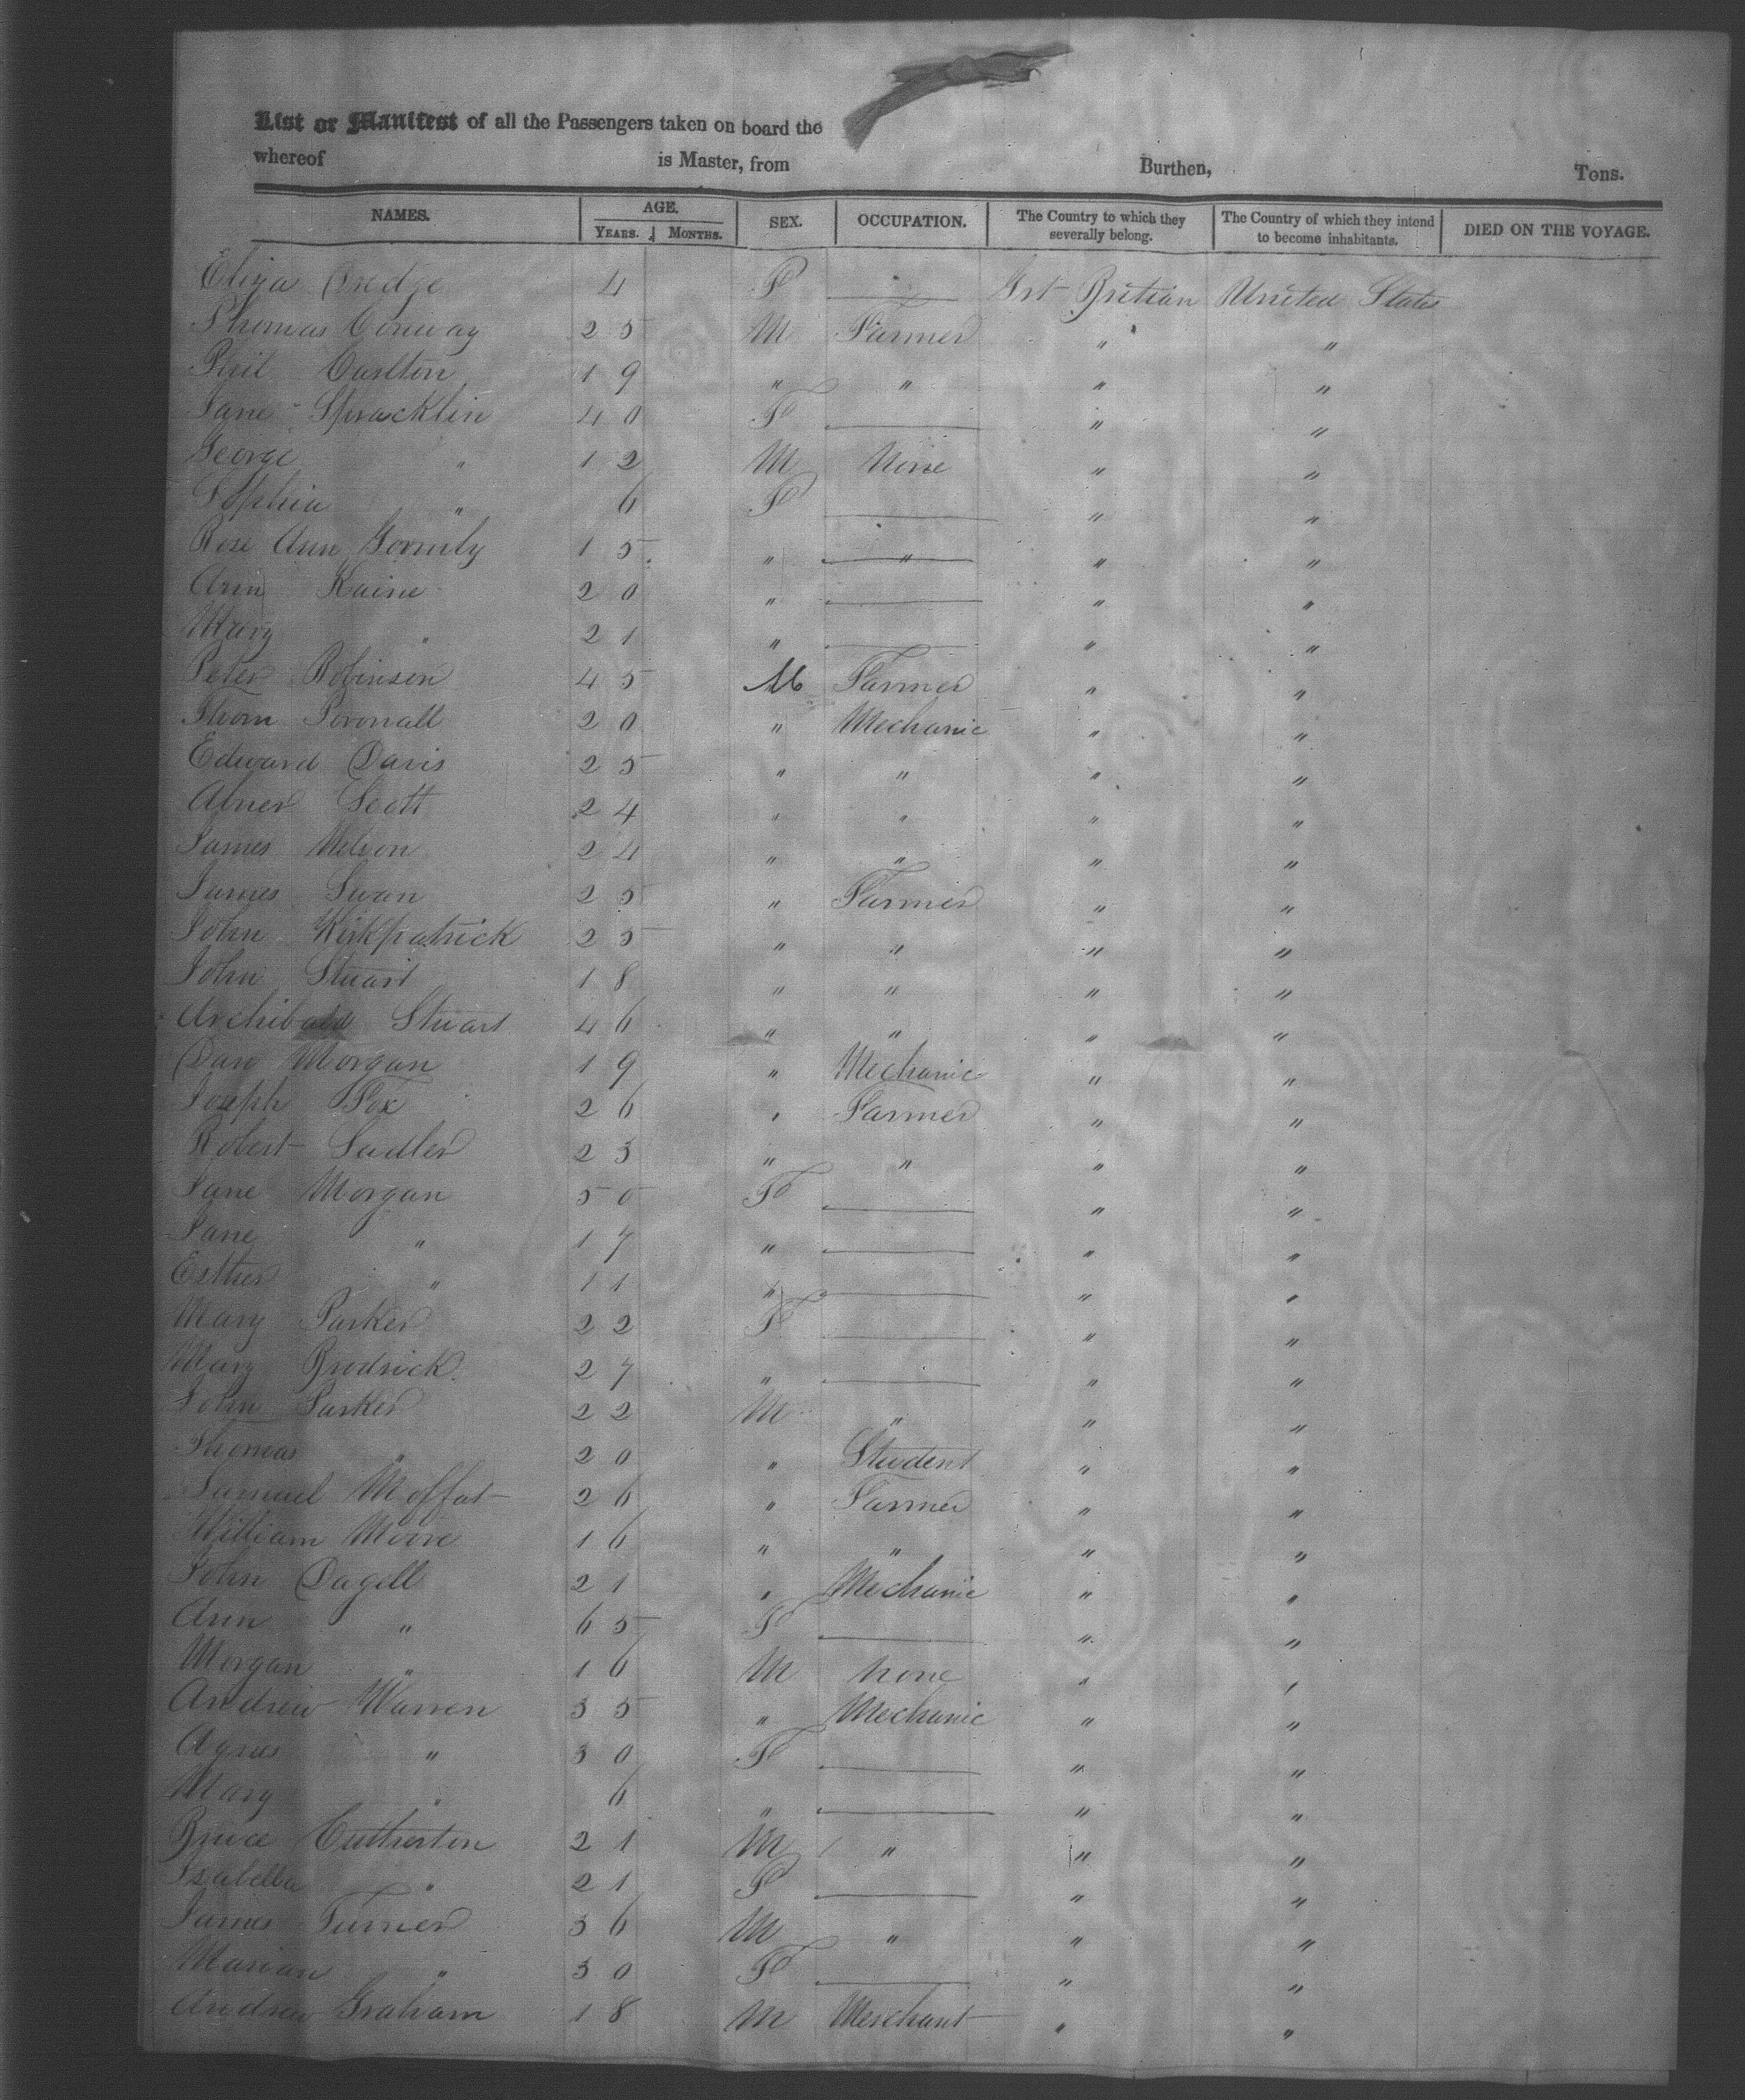 List or Manifest of all the Passengers taken on board the
whereof is Master, from Burthen, Tons.
NAMES. AGE. SEX. OCCUPATION. The Country to which they severally belong. The Country of which they intend to become inhabitants. DIED ON THE VOYAGE.
YEARS. MONTHS.
Eliza Dredge 4 F — Grt Britian United States
Thomas Conway 25 M Farmer " "
Carlton 19 " " " "
Jane Spracklin 40 F — " "
George " 12 M None " "
Sophia " 6 F — " "
Rose Ann Gormly 15 " " " "
Ann Kaine 20 " — " "
Mary " 21 " — " "
Peter Robinson 45 M Farmer " "
Thom 20 " Mechanic " "
Edward Davis 25 " " " "
Abner Scott 24 " " " "
James Nelson 24 " " " "
James Swan 25 " Farmer " "
John Kirkpatrick 25 " " " "
John Stuart 18 " " " "
Archibald Stuart 46 " " " "
Dan Morgan 19 " Mechanic " "
Joseph Fox 26 " Farmer " "
Robert Sadler 23 " " " "
Jane Morgan 50 F — " "
Jane " 17 " — " "
Esther " 11 " — " "
Mary Parker 22 F — " "
Mary Brodrick 27 " — " "
John Parker 22 M " " "
Thomas " 20 " Student " "
Samuel Moffat 26 " Farmer " "
William Moore 16 " " " "
John Dagell 21 " Mechanic " "
Ann " 65 F — " "
Morgan " 16 M None " "
Andrew Warren 35 " Mechanic " "
Agnes " 30 F — " "
Mary " 6 " — " "
Bruce Cutherton 21 M " " "
Isabella " 21 F — " "
James Turner 36 M " " "
Marian " 30 F — " "
Andrew Graham 18 M Merchant " "